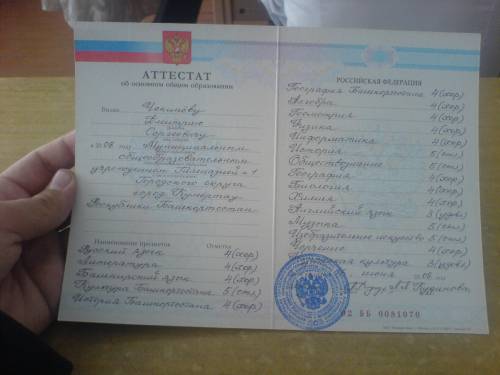 АТТЕСТАТ
об основном общем образовании
Выдан
Дмитрию
Сергеевичу
в 2008 году Муниципальным
общеобразовательным
учреждением Гимназией № 1
Городского округа
город Кумертау
Республики Башкортостан
Наименование предметов Отметка
Русский язык 4(хор)
Литература 4(хор)
Башкирский язык 4(хор)
Культура Башкортостана 5(отл)
История Башкортостана 4(хор)
РОССИЙСКАЯ ФЕДЕРАЦИЯ
География Башкортостана 4(хор)
Алгебра 4(хор)
Геометрия 4(хор)
Физика 4(хор)
Информатика 4(хор)
История 5(отл)
Обществознание 5(отл)
География 4(хор)
Биология 4(хор)
Химия 4(хор)
Английский язык 3(удовл)
Музыка 5(отл)
Изобразительное искусство 5(отл)
Черчение 4(хор)
культура 3(удовл)
июня 2008
02 ББ 0081070